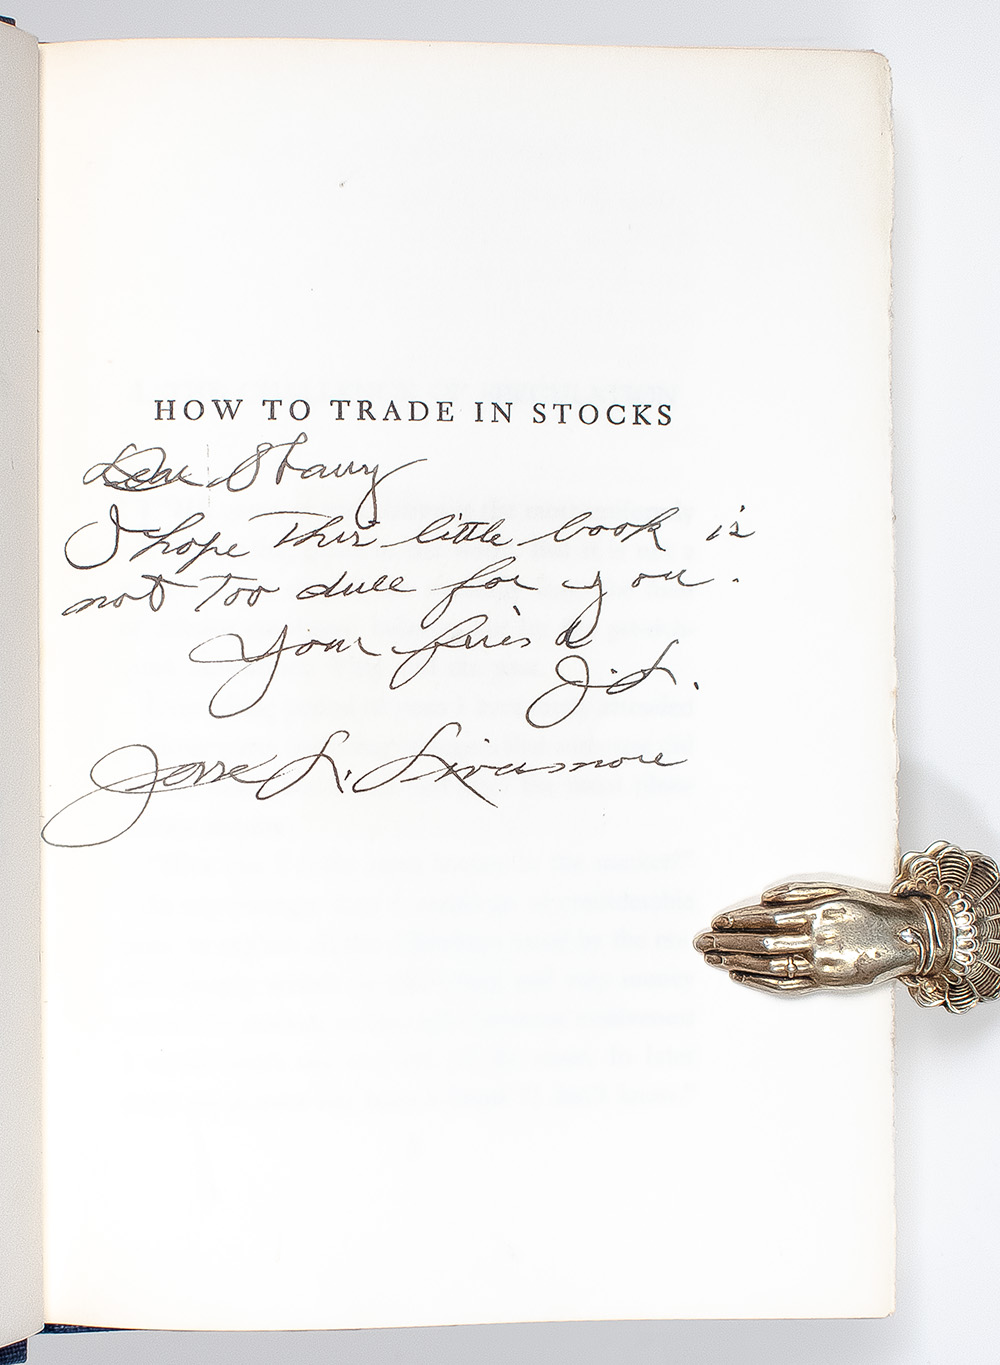 HOW TO TRADE IN STOCKS
Dear
I hope this little book is
not too dull for you.
Your friend
J. L.
Jesse L. Livermore